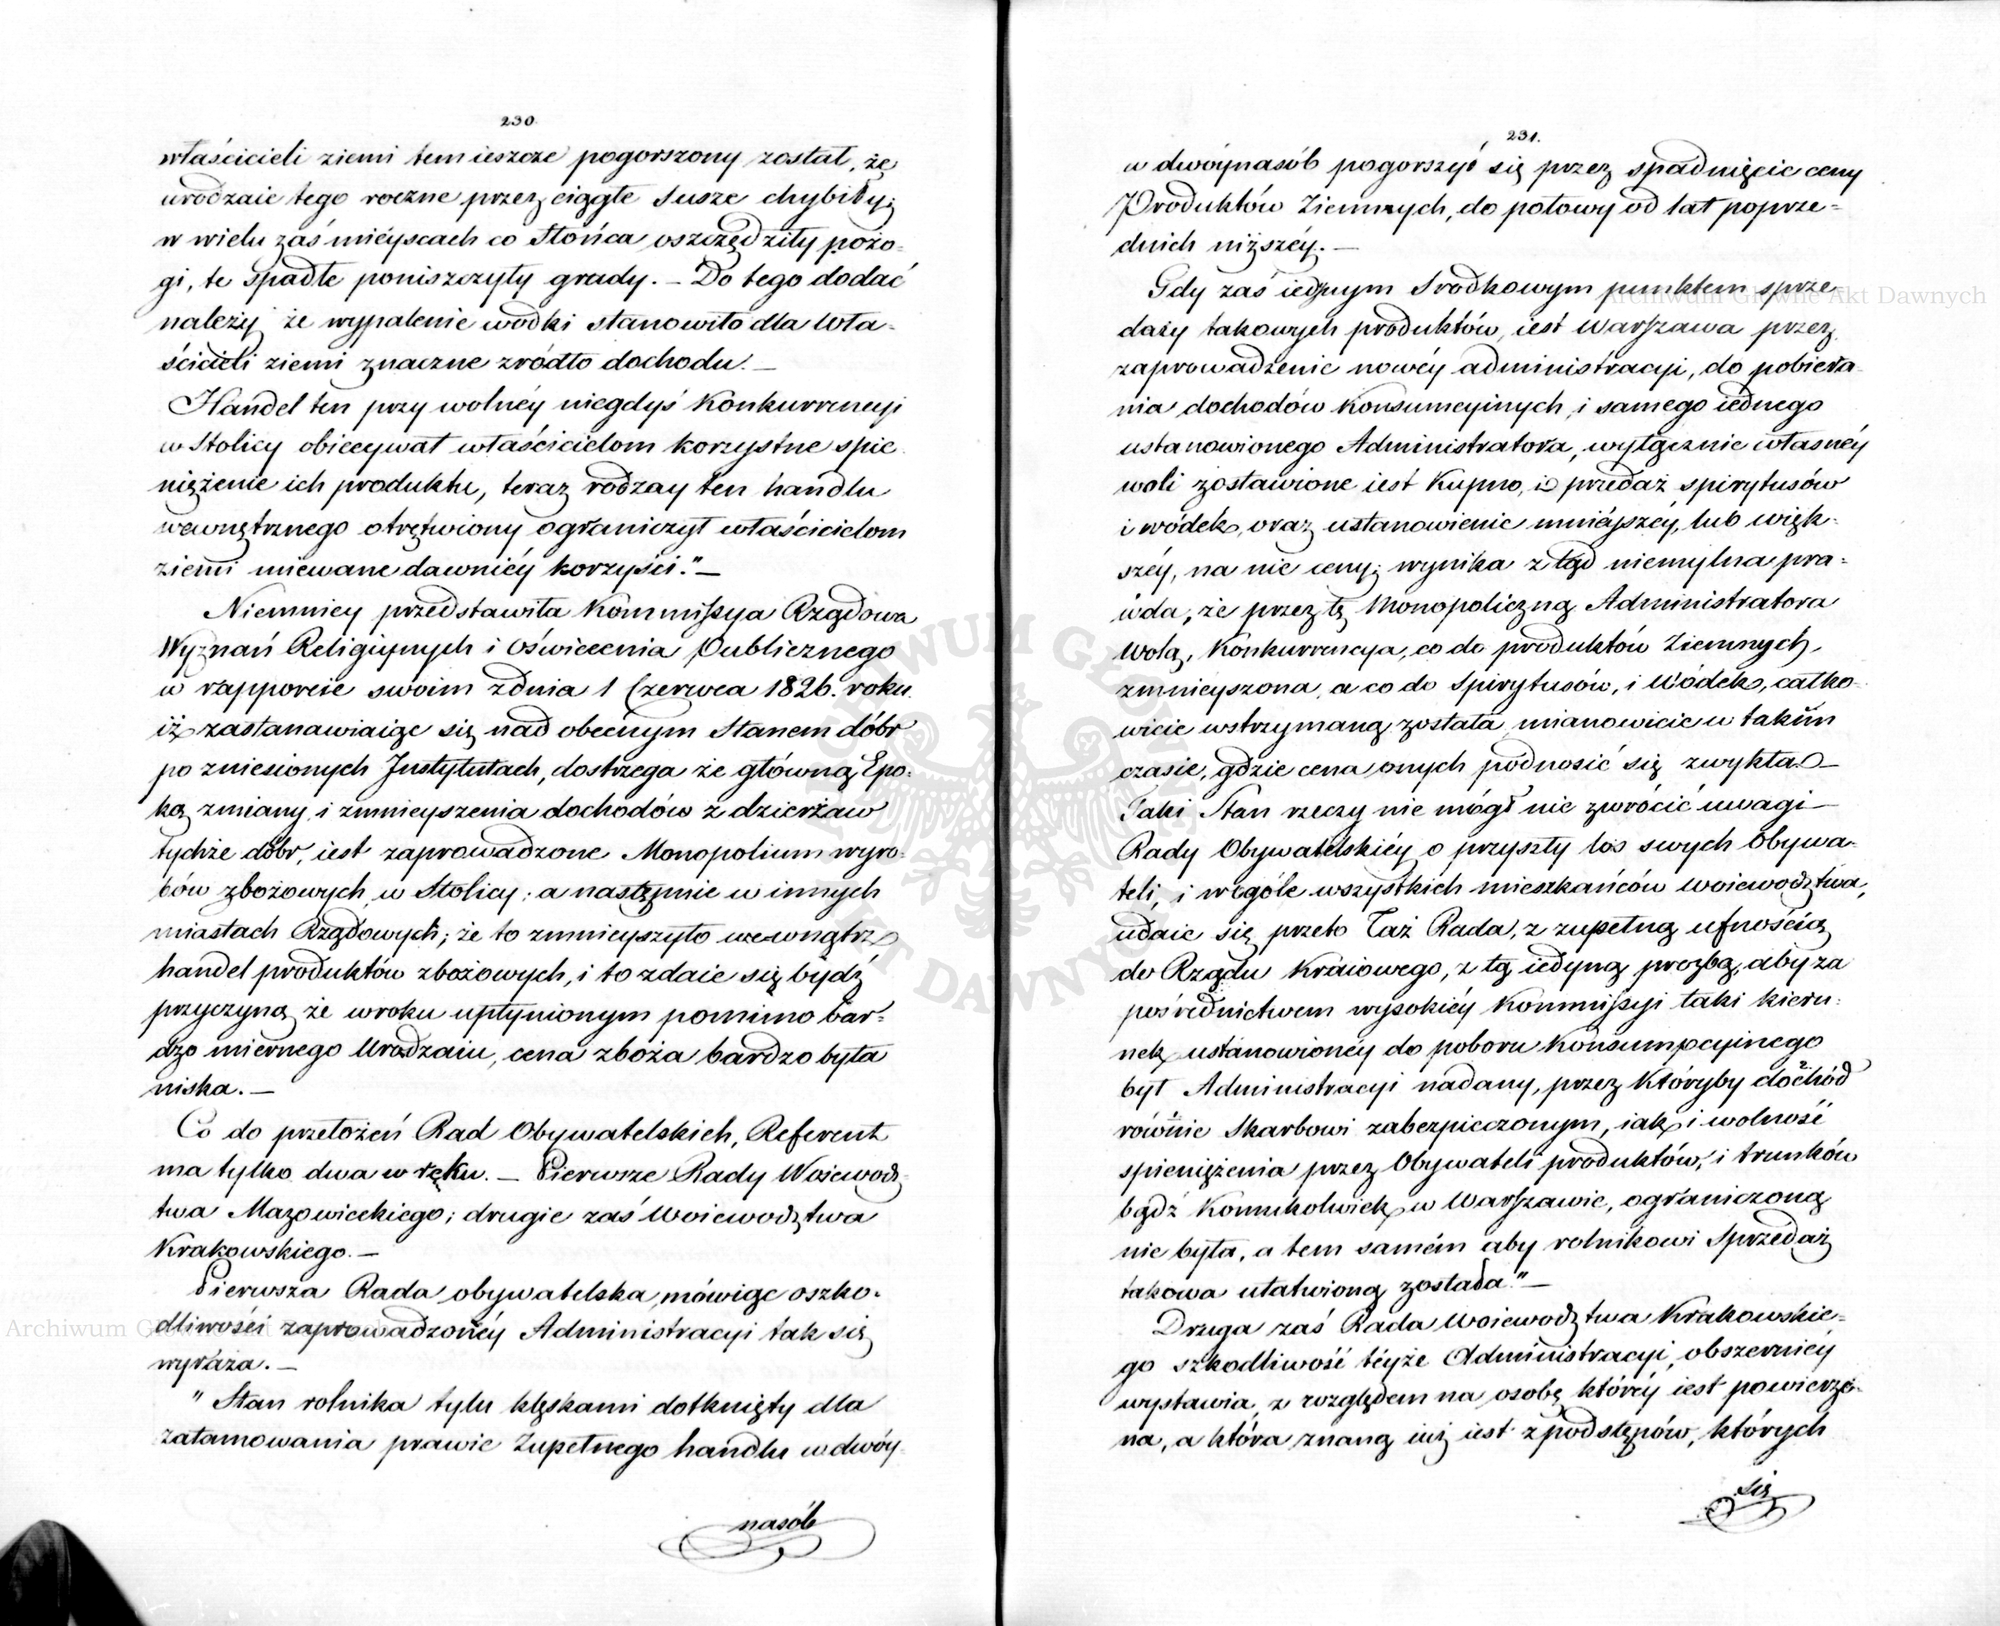 230.
właścicieli ziemi tem ieszcze pogorszony został, że
urodzaie tego roczne przez ciągłe susze chybiły;
w wielu zaś mieyscach co Słońca oszczędziły pożo-
gi, te spadłe poniszczyły grady. – Do tego dodać
należy że wypalenie wódki stanowiło dla Wła-
ścicieli ziemi znaczne zródło dochodu. –
Handel ten przy wolnéy niegdyś Konkurrencyi
w Stolicy obiecywał właścicielom korzystne spie-
niężenie ich produktu, teraz rodzay ten handlu
wewnętrznego otrętwiony ograniczył właścicielom
ziemi miewane dawniéy korzyści." –
Niemniey przedstawiła Kommissya Rządowa
Wyznań Religiynych i Oświecenia Publicznego
w rapporcie swoim z dnia 1 Czerwca 1826. roku
iż zastanawiaiąc się nad obecnym Stanem dóbr
po zniesionych Instytutach, dostrzega że główną Epo-
ką zmiany i zmnieyszenia dochodów z dzierżaw
tychże dóbr, iest zaprowadzone Monopolium wyro-
bów zbożowych w Stolicy; a następnie w innych
miastach Rządowych; że to zmnieyszyło wewnątrz
handel produktów zbożowych, i to zdaie się bydź
przyczyną że w roku upłynionym pomimo bar-
dzo miernego Urodzaiu, cena zboża bardzo była
niska. –
Co do przełożeń Rad Obywatelskich, Referent
ma tylko dwa w ręku. – Pierwsze Rady Woiewodz-
twa Mazowieckiego; drugie zaś Woiewodztwa
Krakowskiego. –
Pierwsza Rada obywatelska, mówiąc o szko-
dliwości zaprowadzonéy Administracyi tak się
wyraża. –
" Stan rolnika tylu klęskami dotknięty dla
zatamowania prawie Zupełnego handlu w dwóy-
nasób
231.
w dwóynasób pogorszył się przez spadnięcie ceny
Produktów Ziemnych, do połowy od lat poprze-
dnich niższéy. –
Gdy zaś iednym Srodkowym punktem sprze-
daży takowych produktów, iest Warszawa przez
zaprowadzenie nowéy administracyi, do pobiera-
nia dochodów Konsumcyinych, i samego iednego
ustanowionego Administratora, wyłącznie własnéy
woli zostawione iest Kupno, i przedaż spirytusów
i wódek, oraz ustanowienie mniéyszéy, lub więk-
széy, na nie ceny; wynika z tąd niemylna pra-
wda, że przez tę Monopoliczną Administratora
Wolą, Konkurrencya, co do produktów Ziemnych,
zmnieyszona, a co do Spirytusów, i Wódek, całko-
wicie wstrzymaną została, mianowicie w takim
czasie, gdzie cena onych podnosić się zwykła. –
Taki Stan rzeczy nie mógł nie zwrócić uwagi
Rady Obywatelskiéy o przyszły los swych Obywa-
teli, i w ogóle wszystkich mieszkańców woiewodztwa,
udaie się przeto Taż Rada, z zupełną ufnością
do Rządu Kraiowego, z tą iedyną prozbą, aby za
pośrednictwem wysokiéy Kommissyi taki kieru-
nek ustanowionéy do poboru Konsumpcyinego
był Administracyi nadany, przez któryby dochód
równie Skarbowi zabezpieczonym, iak i wolność
spieniężenia przez Obywateli produktów, i trunków
bądź Komukolwiek w Warszawie, ograniczoną
nie była, a tem samém aby rolnikowi Sprzedaż
takowa ułatwioną została." –
Druga zaś Rada Woiewodztwa Krakowskie-
go szkodliwość téyże Administracyi, obszerniéy
wystawia, z względem na osobę któréy iest powierzo-
na, a która znaną iuż iest z podstępów, których
się
Archiwum Główne Akt Dawnych